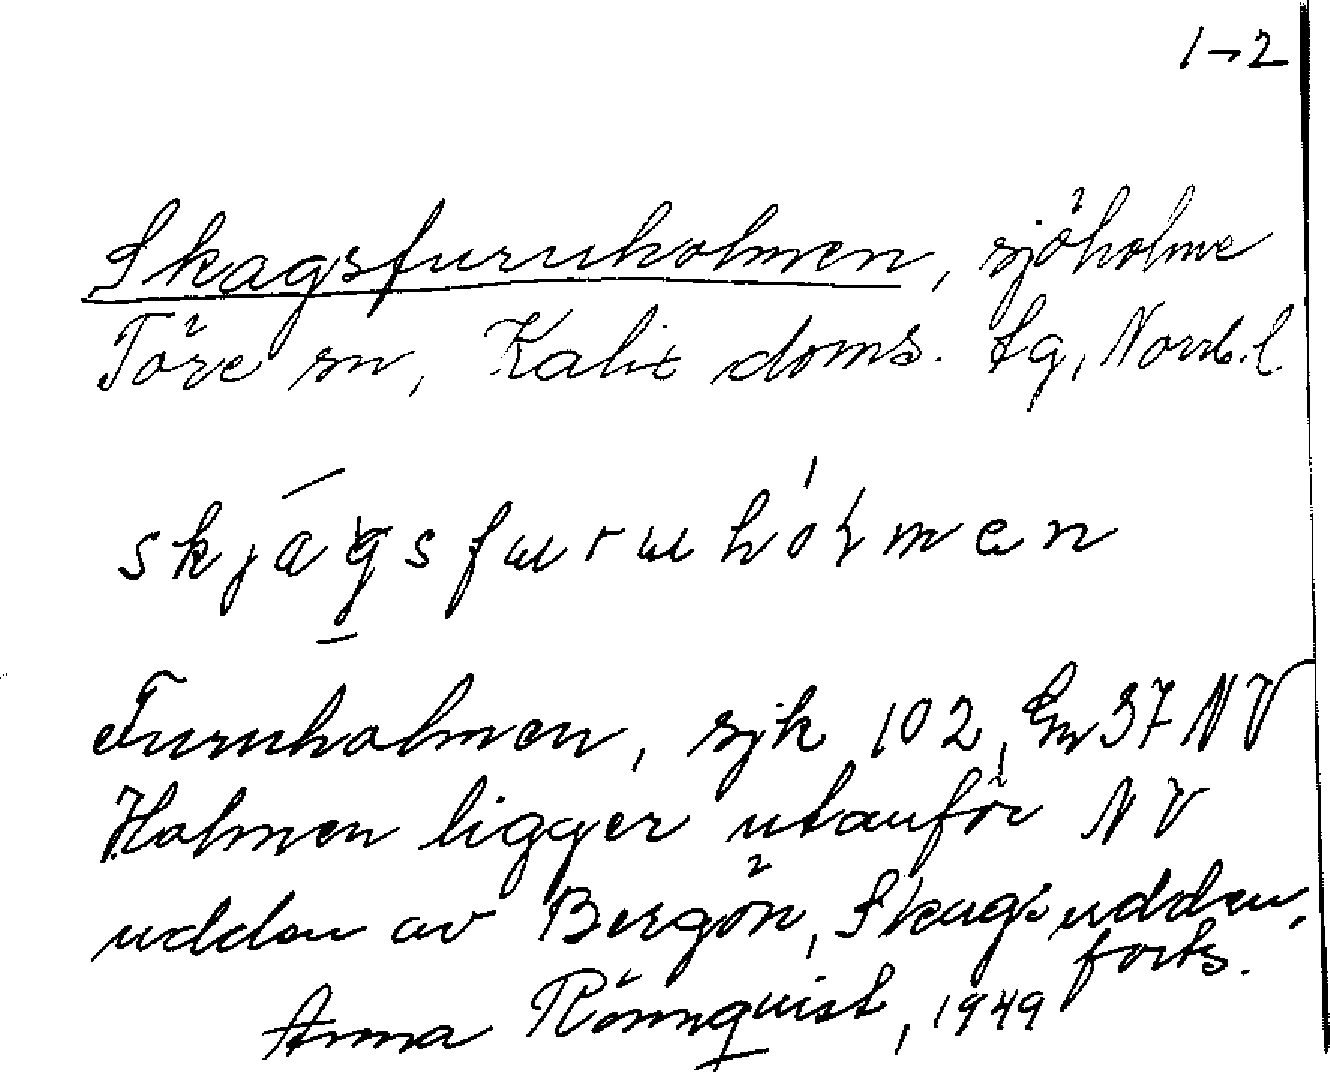 1-2
Skagsfuruholmen, sjöholme
Töre sn, Kalix doms. lg, Norrb. l.
skjágsfuruhólmen
Furuholmen, sjk 102, Em 37 NV
Holmen ligger utanför NV
udden av Bergön, Skagsudden,
forts.
Anna Rönnquist, 1949